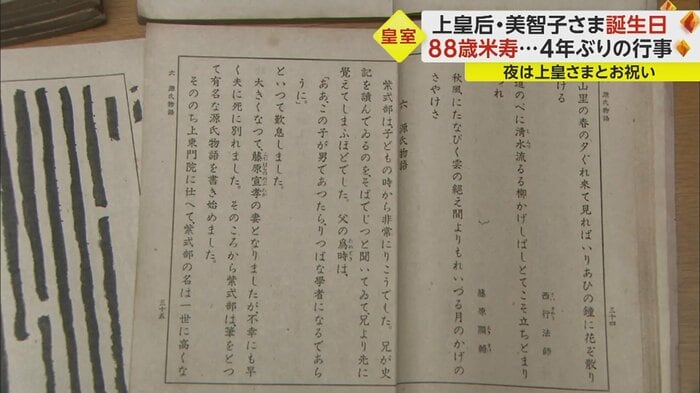 皇室
上皇后・美智子さま誕生日
88歳米寿…4年ぶりの行事
夜は上皇さまとお祝い
源氏物語
山里の春の夕ぐれ来て見ればいりあひの鐘に花ぞ散り
ける
西行法師
道のべに清水流るる柳かげしばしとてこそ立ちどまり
つれ
藤原顯輔
秋風にたなびく雲の絶え間よりもれいづる月のかげの
さやけさ
三十四
六 源氏物語
紫式部は、子どもの時から非常にりこうでした。兄が史
記を讀んでゐるのを、そばでじつと聞いてゐて、兄より先に
覺えてしまふほどでした。父の爲時は、
「ああ、この子が男であつたら、りつぱな學者になるであら
うに。」
といつて歎息しました。
大きくなつて、藤原宣孝の妻となりましたが、不幸にも早
く夫に死に別れました。そのころから紫式部は、筆をとつ
て有名な源氏物語を書き始めました。
そののち上東門院に仕へて、紫式部の名は一世に高くな
六 源氏物語
三十五